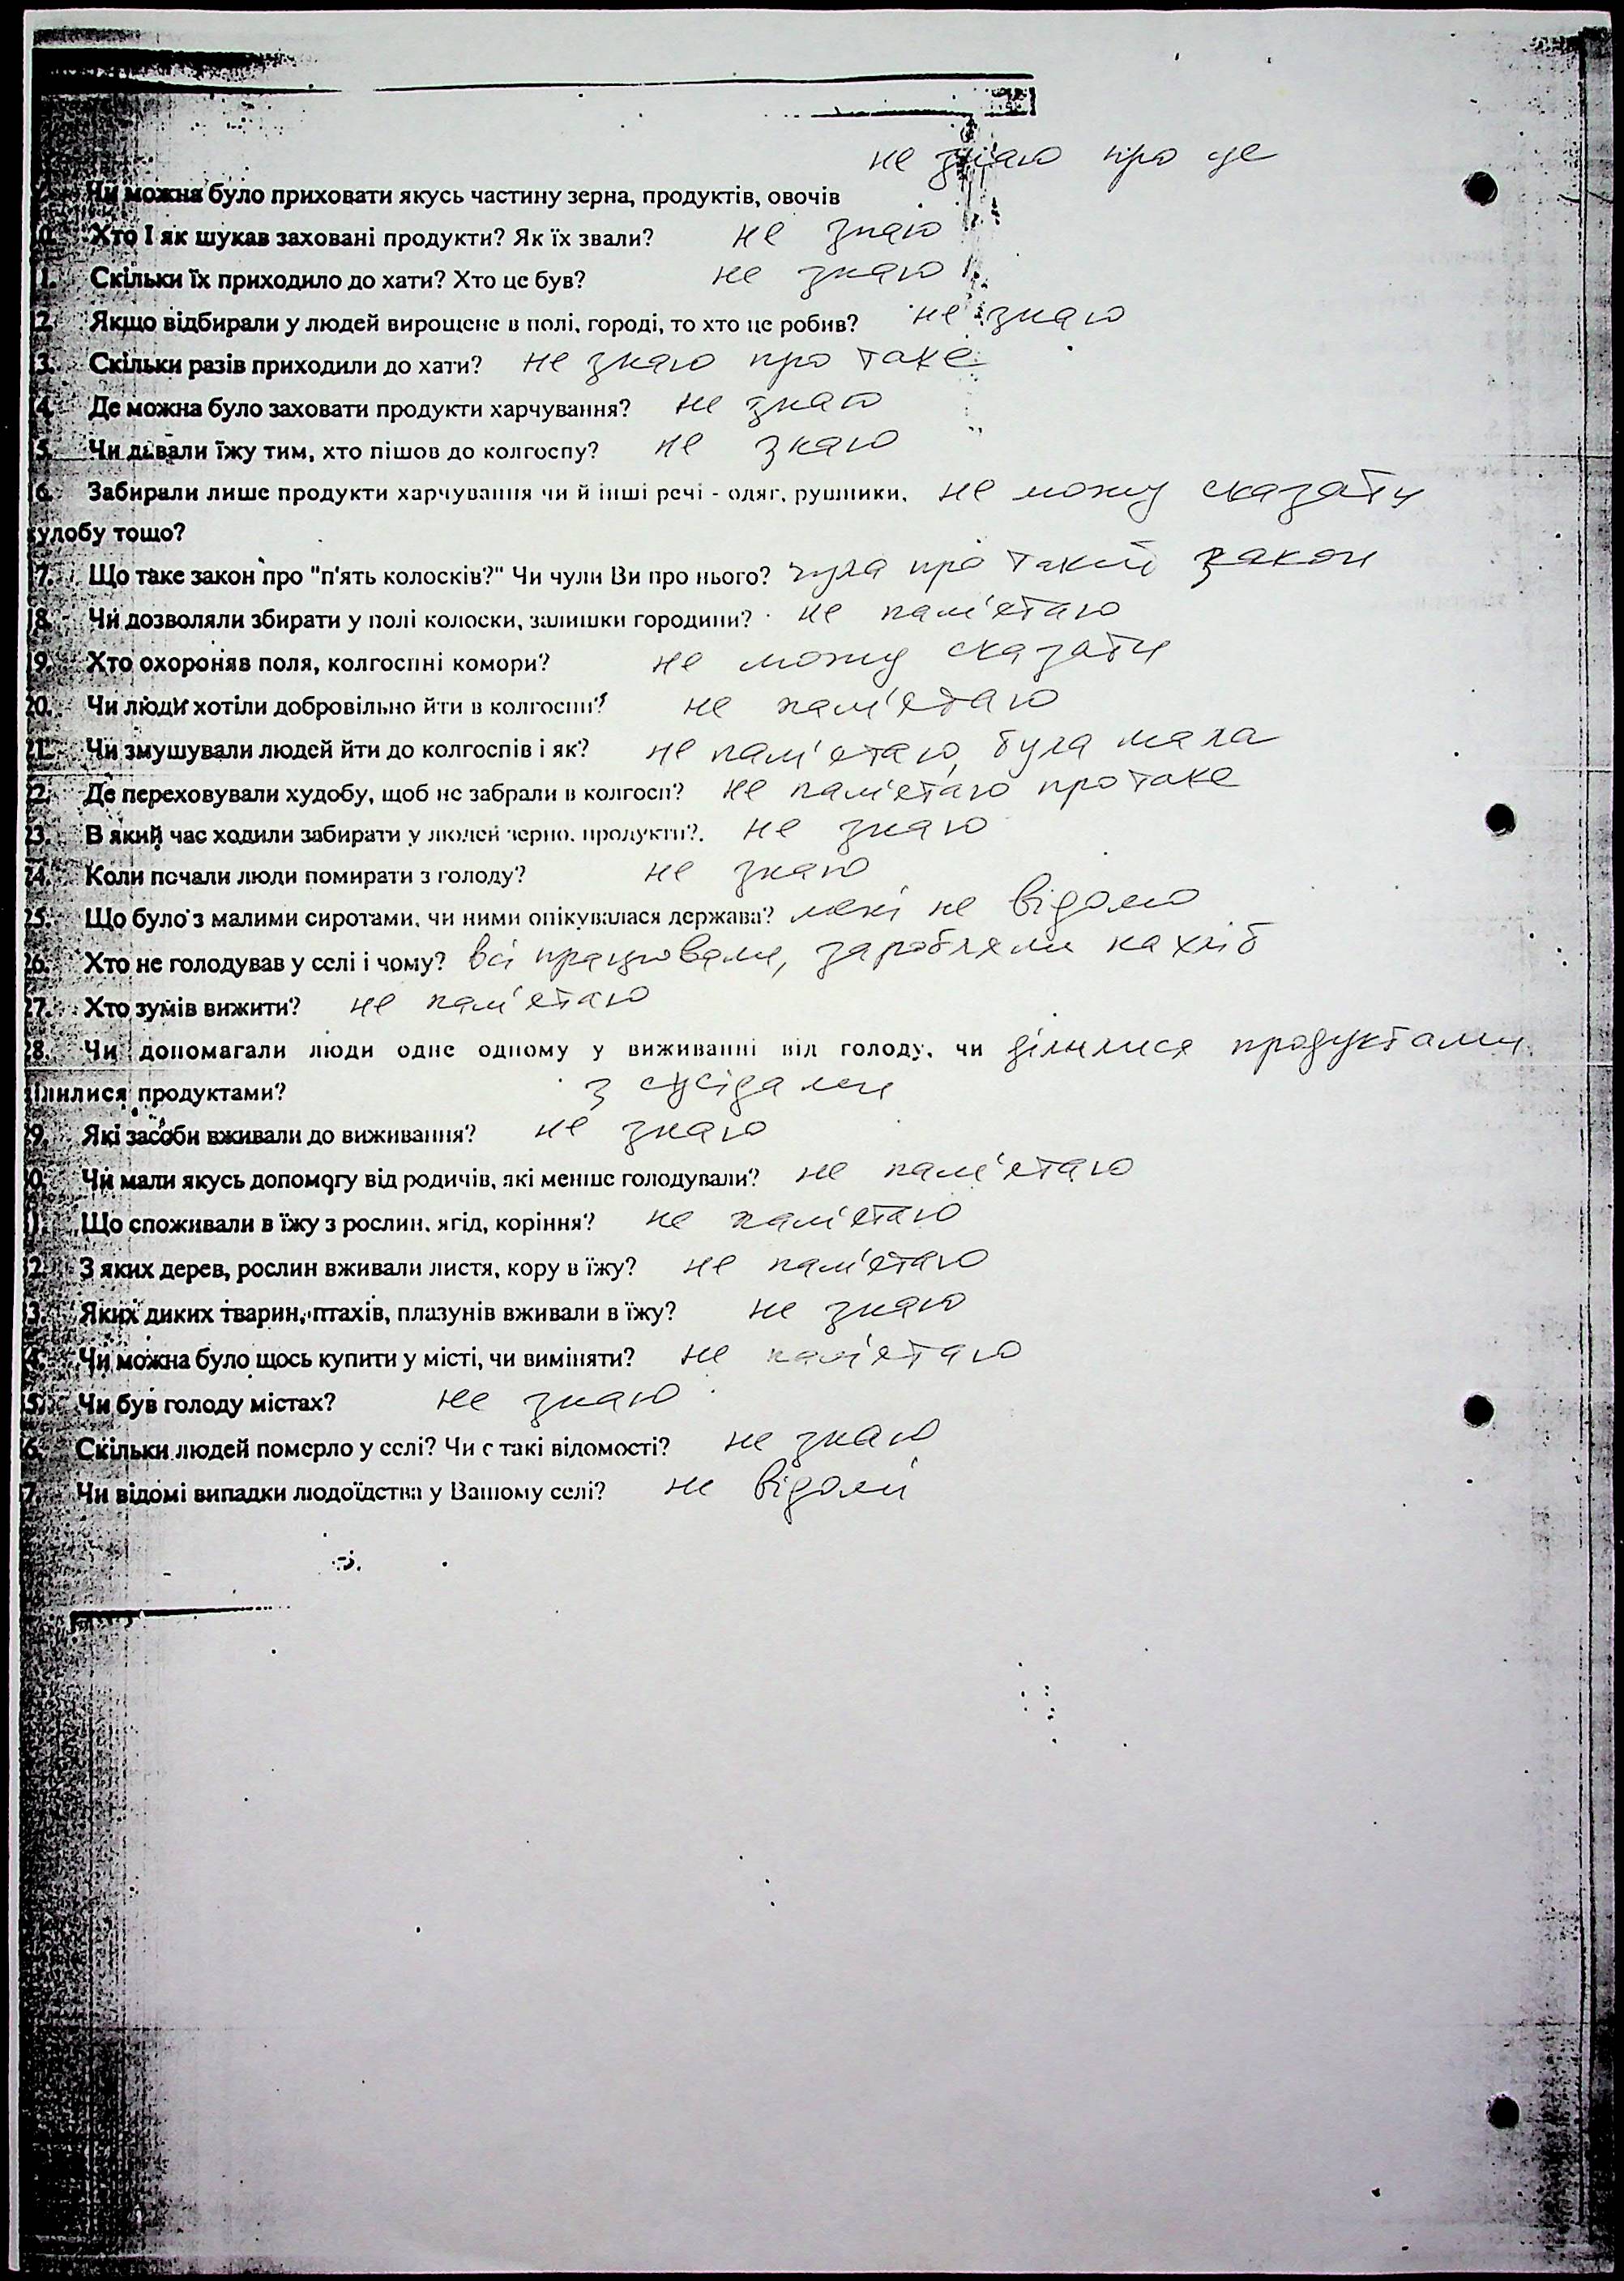 не знаю про це
Чи можна було приховати якусь частину зерна, продуктів, овочів
0. Хто І як шукав заховані продукти? Як їх звали? не знаю
1. Скільки їх приходило до хати? Хто це був? не знаю
2. Якщо відбирали у людей вирощене в полі, городі, то хто це робив? не знаю
3. Скільки разів приходили до хати? не знаю про таке
4. Де можна було заховати продукти харчування? не знаю
5. Чи давали їжу тим, хто пішов до колгоспу? не знаю
16. Забирали лише продукти харчування чи й інші речі - одяг, рушники, не можу сказати
худобу тощо?
17. Що таке закон про "п'ять колосків?" Чи чули Ви про нього? чула про такий закон
18. Чи дозволяли збирати у полі колоски, залишки городини? не пам'етаю
19. Хто охороняв поля, колгоспні комори? не можу сказати
20. Чи люди хотіли добровільно йти в колгоспи? не пам'етаю
21. Чи змушували людей йти до колгоспів і як? не пам'етаю, була мала
22. Де переховували худобу, щоб не забрали в колгосп? не пам'етаю про таке
23. В який час ходили забирати у людей зерно, продукти?. не знаю
24. Коли почали люди помирати з голоду? не знаю
25. Що було з малими сиротами, чи ними опікувалася держава? мені не відомо
26. Хто не голодував у селі і чому? всі працювали, заробляли на хліб
27. Хто зумів вижити? не пам'етаю
28. Чи допомагали люди одне одному у виживанні від голоду, чи ділилися продуктами
ділилися продуктами? з сусідами
29. Які засоби вживали до виживання? не знаю
0. Чи мали якусь допомогу від родичів, які менше голодували? не пам'етаю
1. Що споживали в їжу з рослин, ягід, коріння? не пам'етаю
2. З яких дерев, рослин вживали листя, кору в їжу? не пам'етаю
3. Яких диких тварин, птахів, плазунів вживали в їжу? не знаю
4. Чи можна було щось купити у місті, чи виміняти? не пам'етаю
5. Чи був голоду містах? не знаю
6. Скільки людей померло у селі? Чи є такі відомості? не знаю
7. Чи відомі випадки людоїдства у Вашому селі? не відомі